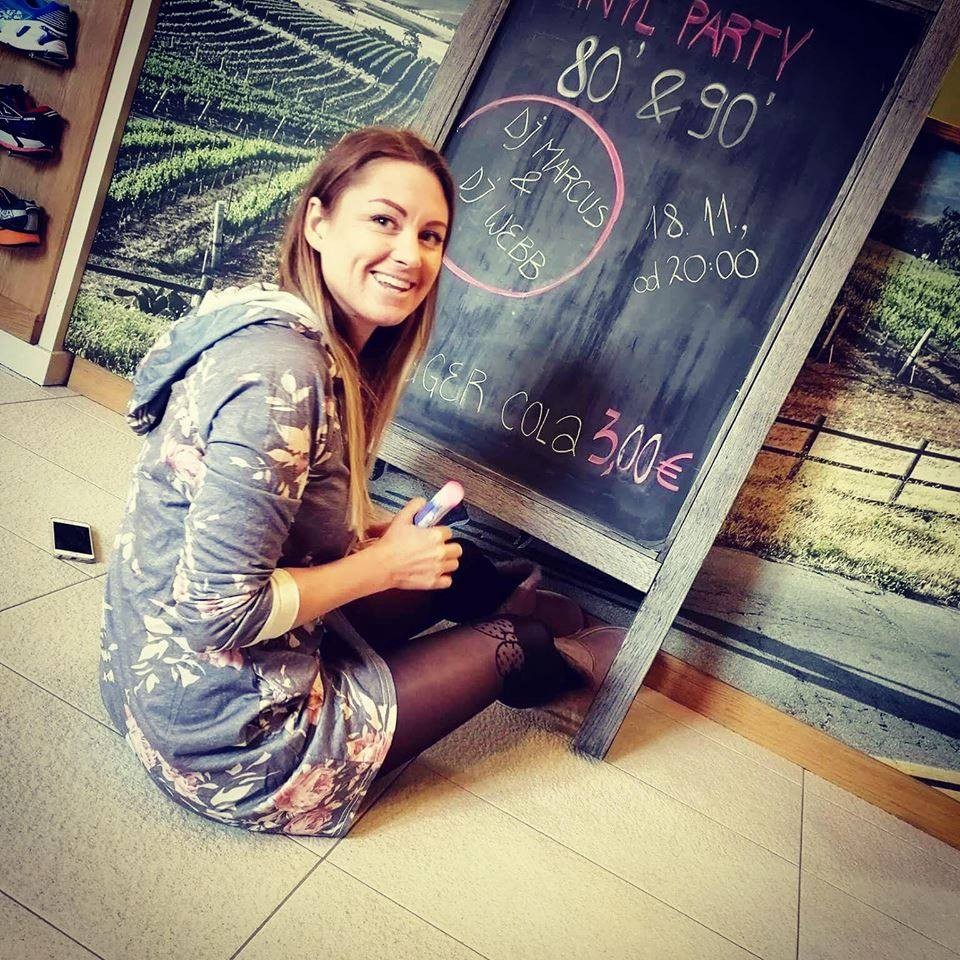 PARTY
80' & 90'
Dj MARCUS
&
Dj WEBB
18.11.,
od 20:00
COLA 3,00€